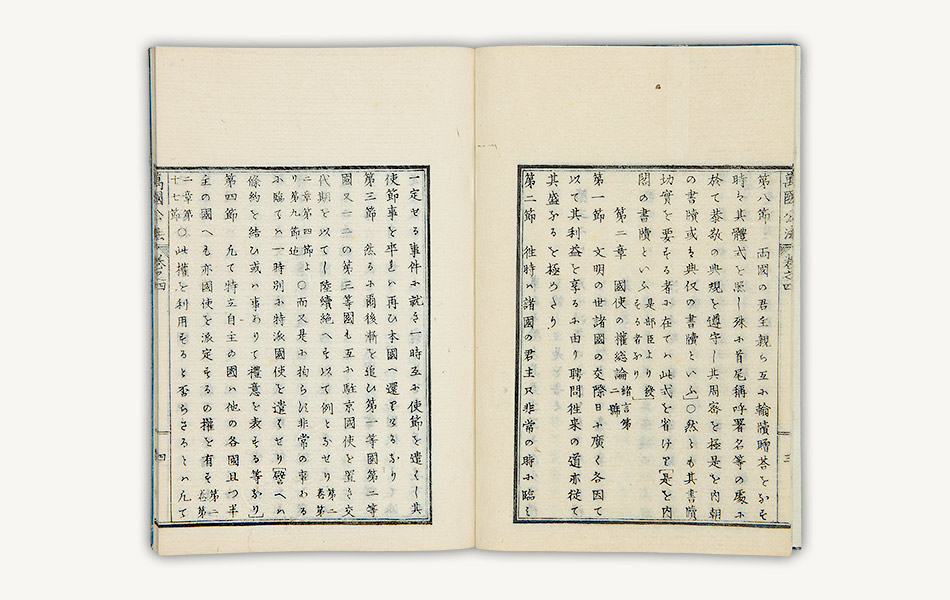 萬國公法 卷之四 三
第八節 兩國の君主親ら互に翰牘贈答をなす
時は其體式を照し殊に首尾稱呼署名等の處に
於て恭敬の典規を遵守し其周密を極む是を内朝
の書牘或は典仪の書牘といふ〇然とも其書牘
切實を要する者に在ては此式を省けり[是を内
閣の書牘といふ是部臣より發する者なり]
第二章 國使の權總論緒言第二號
第一節 文明の世諸國の交際日に廣く各因て
以て其利益を享るに由り聘問往來の道亦從て
其盛なるを極めたり
第二節 往時は諸國の君主只非常の時に臨み
一定せる事件に就き一時互に使節を遣くし其
使節事を畢れは再ひ本國へ還りたるなり
第三節 然るに爾後漸を追ひ第一等國第二等
國又一二の第三等國も互に駐京國使を置き交
代期を以てし陸續絶へさるを以て例となせり第二卷第
二章第四節より第九節迄〇而又是に拘らす非常の事ある
に臨ては一時別に特派國使を遣くせり[譬へは
條約を結ひ或は事ありて禮意を表する等なり]
第四節 凡て特立自主の國は他の各國且つ半
主の國へも亦國使を派定するの權を有す第二卷第
二章第十七節〇此權を利用すると否らさるとは凡て
萬國公法 卷之四 四